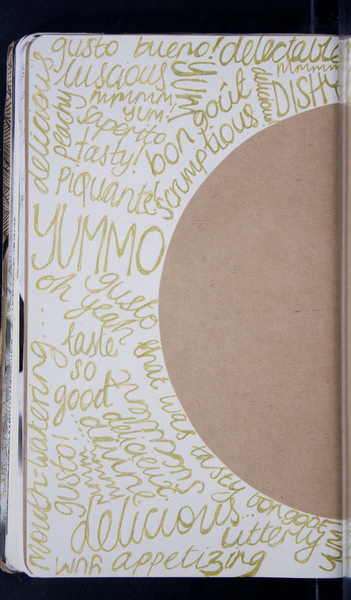 gusto bueno! delectable
delicious
luscious
YUM
mmmm
delicious
DISHY
peachy
mmmmm
YUM.
saporito
tasty!
bon goût
scrumptious
piquante!
YUMMO
gusto
oh yeah
taste
so
good
that was tasty
mouth-watering...
gusto!
delicious
bon gout
delicious...
utterly
YUM appetizing